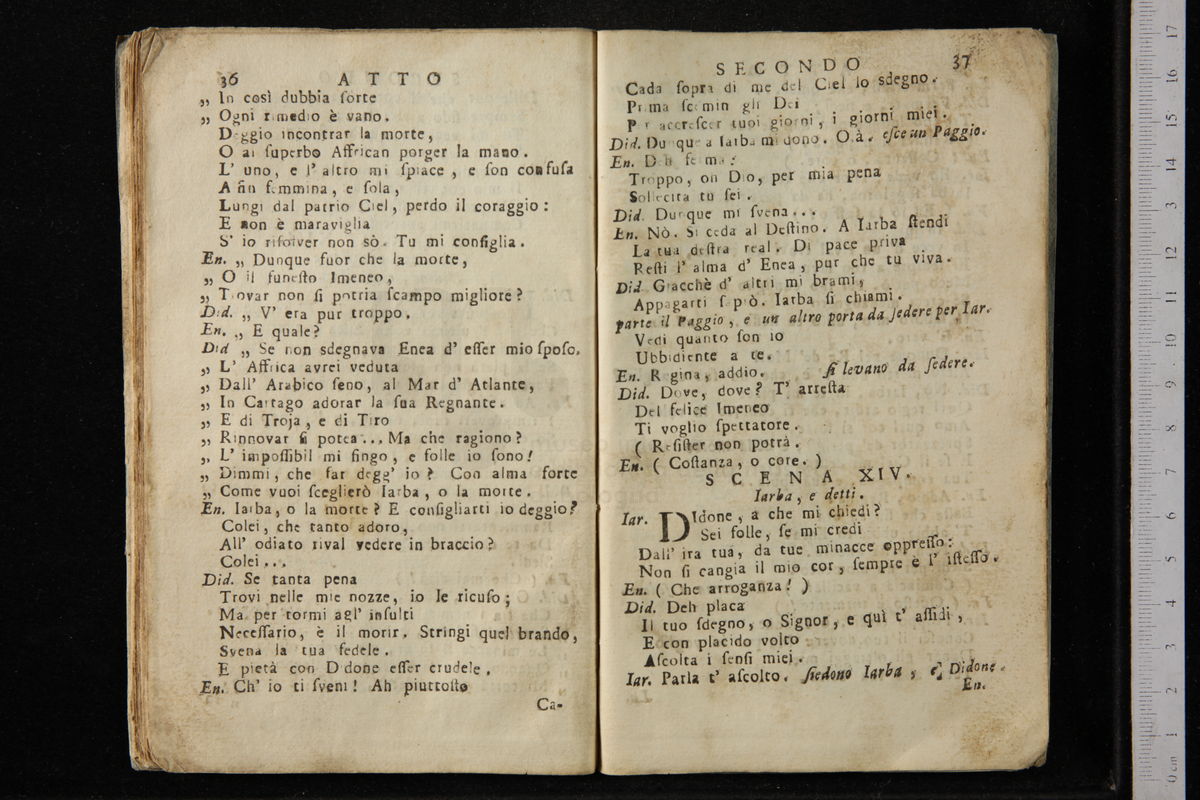 36 ATTO
„ In così dubbia ſorte
„ Ogni rimedio è vano.
Deggio incontrar la morte,
O al ſuperbo Affrican porger la mano.
L' uno, e l' altro mi ſpiace, e ſon confuſa
Alfin femmina, e ſola,
Lungi dal patrio Ciel, perdo il coraggio:
E non è maraviglia
S' io riſolver non sò. Tu mi conſiglia.
En. „ Dunque fuor che la morte,
„ O il funeſto Imeneo,
„ Trovar non ſi potria ſcampo migliore?
Did. „ V' era pur troppo.
En. „ E quale?
Did „ Se non sdegnava Enea d' eſſer mio ſpoſo,
„ L' Affrica avrei veduta
„ Dall' Arabico ſeno, al Mar d' Atlante,
„ In Cartago adorar la ſua Regnante.
„ E di Troja, e di Tiro
„ Rinnovar ſi potea... Ma che ragiono?
„ L' impoſſibil mi fingo, e folle io ſono!
„ Dimmi, che far degg' io? Con alma forte
„ Come vuoi ſceglierò Iarba, o la morte.
En. Iarba, o la morte? E conſigliarti io deggio?
Colei, che tanto adoro,
All' odiato rival vedere in braccio?
Colei...
Did. Se tanta pena
Trovi nelle mie nozze, io le ricuſo;
Ma per tormi agl' inſulti
Neceſſario, è il morir. Stringi quel brando,
Svena la tua fedele.
E pietà con Didone eſſer crudele.
En. Ch' io ti ſveni! Ah piuttoſto
Ca-
SECONDO 37
Cada ſopra di me del Ciel lo sdegno.
Prima ſcemin gli Dei
Per accreſcer tuoi giorni, i giorni miei.
Did. Dunque a Iarba mi dono. Olà. eſce un Paggio.
En. Deh ferma:
Troppo, oh Dio, per mia pena
Sollecita tu ſei.
Did. Dunque mi ſvena...
En. Nò. Si ceda al Deſtino. A Iarba ſtendi
La tua deſtra real. Di pace priva
Reſti l' alma d' Enea, pur che tu viva.
Did Giacchè d' altri mi brami,
Appagarti ſaprò. Iarba ſi chiami.
parte il Paggio, e un altro porta da ſedere per Iar.
Vedi quanto ſon io
Ubbidiente a te.
En. Regina, addio. ſi levano da ſedere.
Did. Dove, dove? T' arreſta
Del felice Imeneo
Ti voglio ſpettatore.
( Reſiſter non potrà.
En. ( Coſtanza, o core. )
SCENA XIV.
Iarba, e detti.
Iar. DIdone, a che mi chiedi?
Sei folle, ſe mi credi
Dall' ira tua, da tue minacce oppreſſo:
Non ſi cangia il mio cor, ſempre è l' iſteſſo.
En. ( Che arroganza! )
Did. Deh placa
Il tuo ſdegno, o Signor, e quì t' aſſidi,
E con placido volto
Aſcolta i ſenſi miei.
Iar. Parla t' aſcolto. ſiedono Iarba, e Didone.
En.